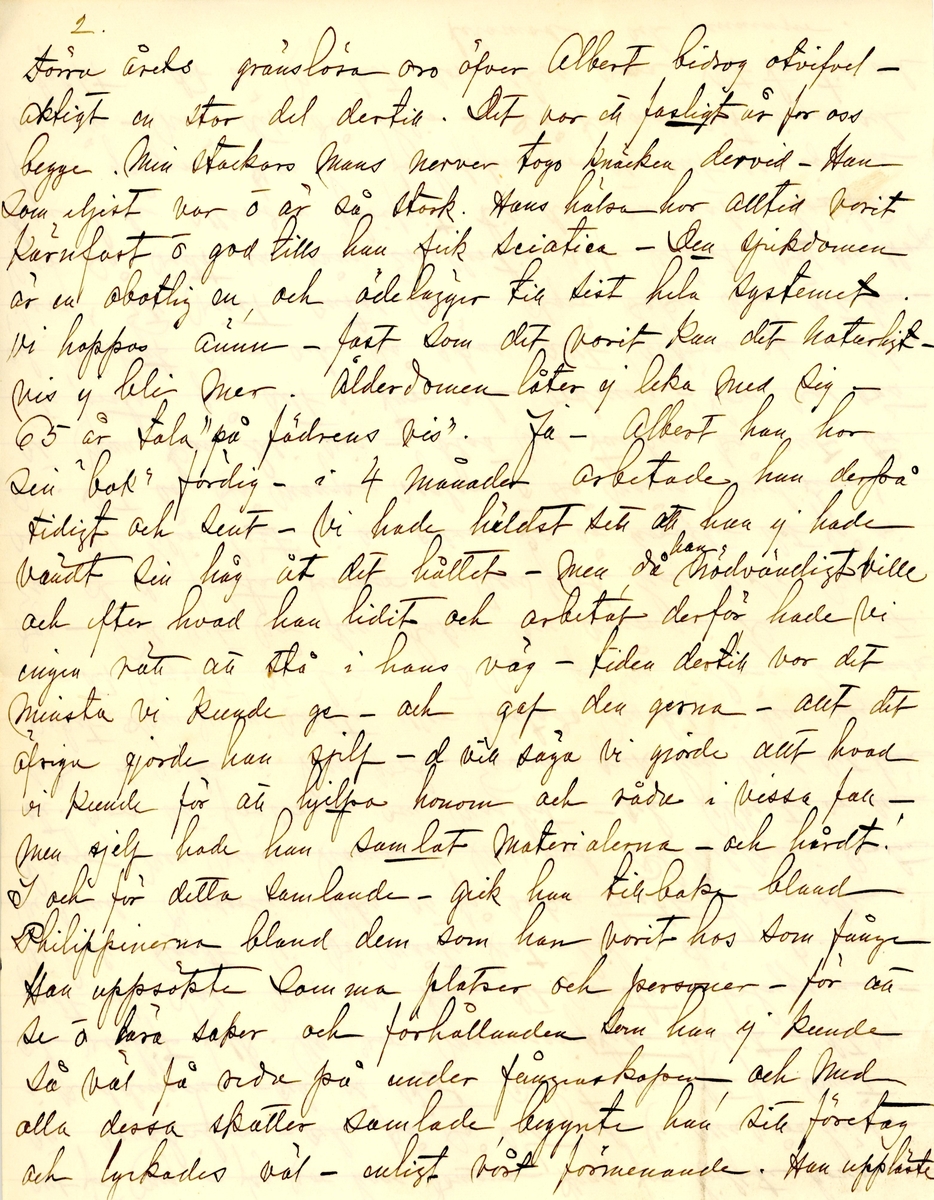 2.
förra årets gränslösa oro öfver Albert bidrog otvifvel-
aktigt en stor del dertill. Det var ett fasligt år för oss
begge. Min stackars mans nerver togo knäcken dervid - Han
som eljest var o är så stark. Hans hälsa har alltid varit
kärnfast o god tills han fick sciatica - Den sjukdomen
är en obotlig en, och ödelägger till sist hela systemet.
vi hoppas ännu - fast som det varit kan det naturligt-
vis ej bli mer. Ålderdomen låter ej leka med sig -
65 år tala "på fädrens vis". Ja - Albert han har
sin "bok" färdig - i 4 månader arbetade han derpå
tidigt och sent - Vi hade häldst sett att han ej hade
vändt sin håg åt det hållet - men då han nödvändigt ville
och efter hvad han lidit och arbetat derför, hade vi
ingen rätt att stå i hans väg - tiden dertill var det
minsta vi kunde ge - och gaf den gerna - allt det
öfriga gjorde han sjelf - d vill säga vi gjorde allt hvad
vi kunde för att hjelpa honom och råda i vissa fall -
men sjelf hade han samlat materialerna - och hårdt!
I och för detta samlande - gick han tillbaka bland
Philippinerna bland dem som han varit hos som fånge
Han uppsökte samma platser och personer - för att
se o lära saker och förhållanden som han ej kunde
så väl få reda på under fångenskapen, och med
alla dessa skatter samlade, begynte han sitt företag
och lyckades väl - enligt vårt förmenande. Han uppläste